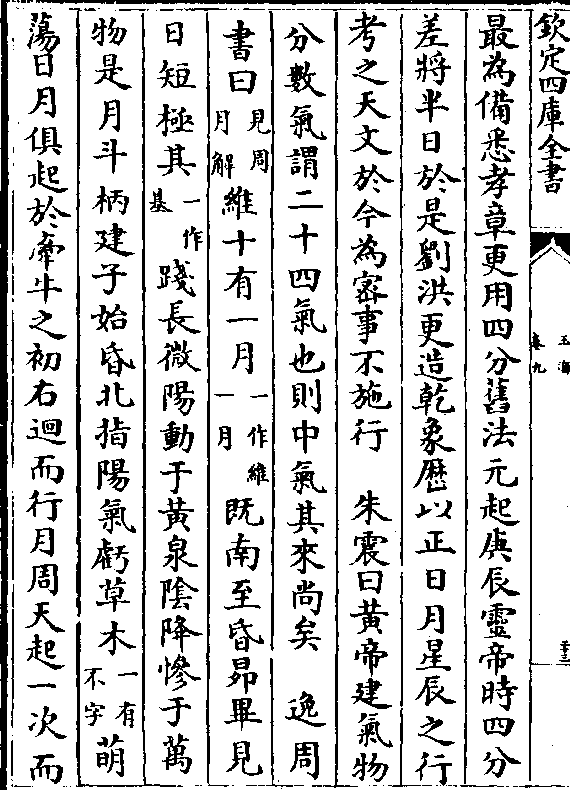 欽定四庫全書
玉海
卷九
三十三
最為備悉孝章更用四分舊法元起庚辰靈帝時四分
差將半日於是劉洪更造乾象歷以正日月星辰之行
考之天文於今為密事不施行　朱震曰黃帝建氣物
分數氣謂二十四氣也則中氣其來尚矣　逸周
書曰見周月解維十有一月一作維一月既南至昏昴畢見
日短極其一作基踐長微陽動于黃泉陰降慘于萬
物是月斗柄建子始昏北指陽氣虧草木一有不字萌
蕩日月俱起於牽牛之初右迴而行月周天起一次而